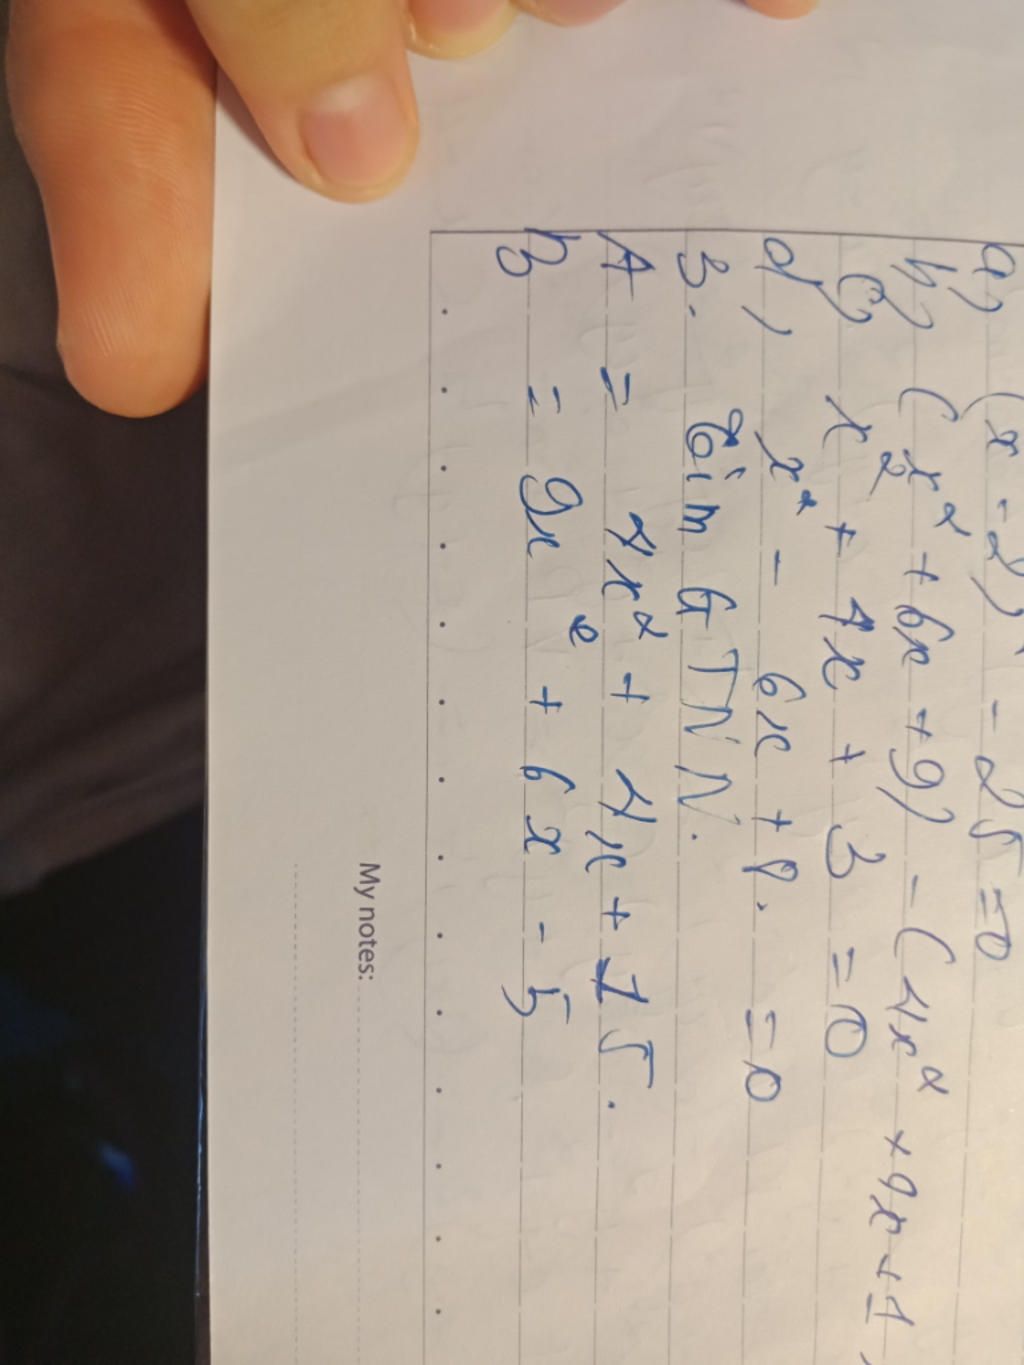 a) (x - 2)² - 25 = 0
b) (x² + 6x + 9) - (4x² + 4x + 1
c) x² + 4x + 3 = 0
d) x² - 6x + 8. = 0
3. Tìm GTNN.
A = 4x² + 4x + 15.
B = 9x² + 6x - 5
My notes: